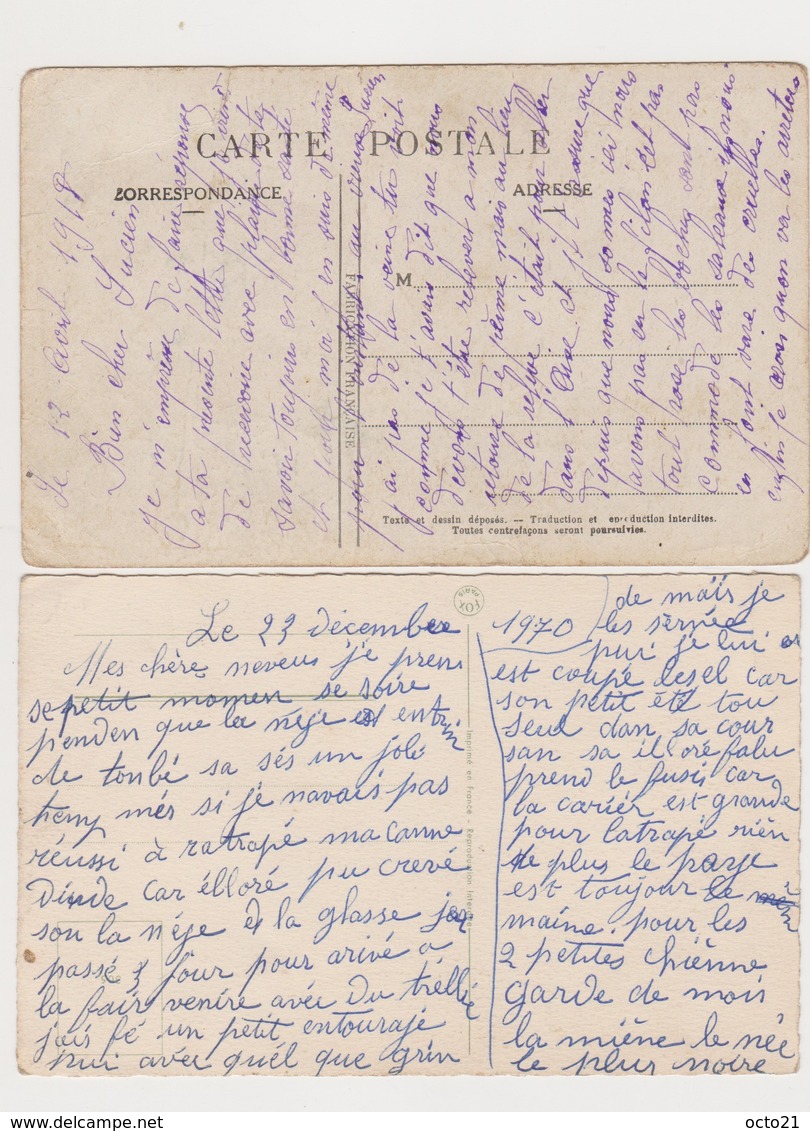 CARTE POSTALE
CORRESPONDANCE
ADRESSE
M
FABRICATION FRANÇAISE
Texte et dessin déposés. — Traduction et reproduction interdites.
Toutes contrefaçons seront poursuivies.
Le 12 Avril 1918
Bien cher Lucien
je m'emprèsse de faire réponse
a ta présente lettre que je viens
de recevoir avec plaisir de ta
savoir toujours en bonne santé
et quand moi j'en suis de même
pour au
j'ai pas de la veine tu vois
comme je t'avais dit que nous
devons t'être relever a mon
retour de perme mais au lieu
de la releve c'était pour aller
dans l'Oise et je t'assure que
depuis que nous sommes ici nous
avons pas eu le filon c'est pas
tout rose les boches sont pas
commode les saleaux ils nous
en font voir des cruelles.
enfin je crois quon va les arreter
FOX
PARIS
Imprimé en France - Reproduction Interdite
Le 23 décembre
Mes chère neveus je prens
se petit momen se soire
penden que la néje est entrin
de tonbé sa sés un joli
tenp més si je navais pas
réussi à ratrapé ma canne
Dinde car élloré pu crevé
son la néje et la glasse jai
passé 3 jour pour arivé a
la fair venire avec du tréllie
jais fé un petit entouraje
pui avec quél que grin
1970
de maïs je
les sérnée
pui je lui ai
est coupé lesel car
son petit été tou
seul dan sa cour
san sa il oré falu
prend le fusis car
la cariér est grande
pour latrapé rién
de plus le paye
est toujour le
maine. pour les
2 petites chiênne
garde de mois
la miéne le née
le plus noire